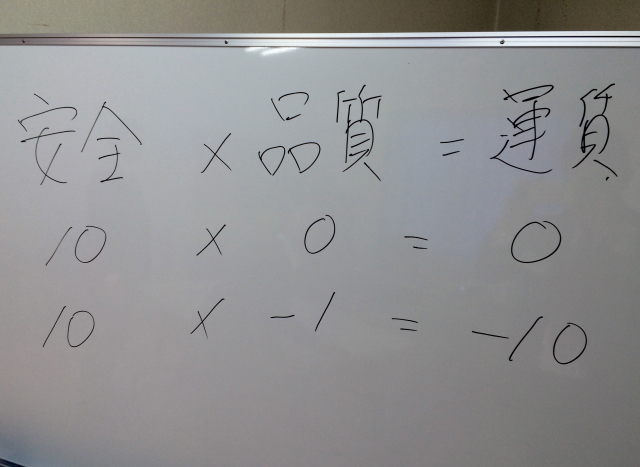 安全 × 品質 = 運賃
10 × 0 = 0
10 × -1 = -10